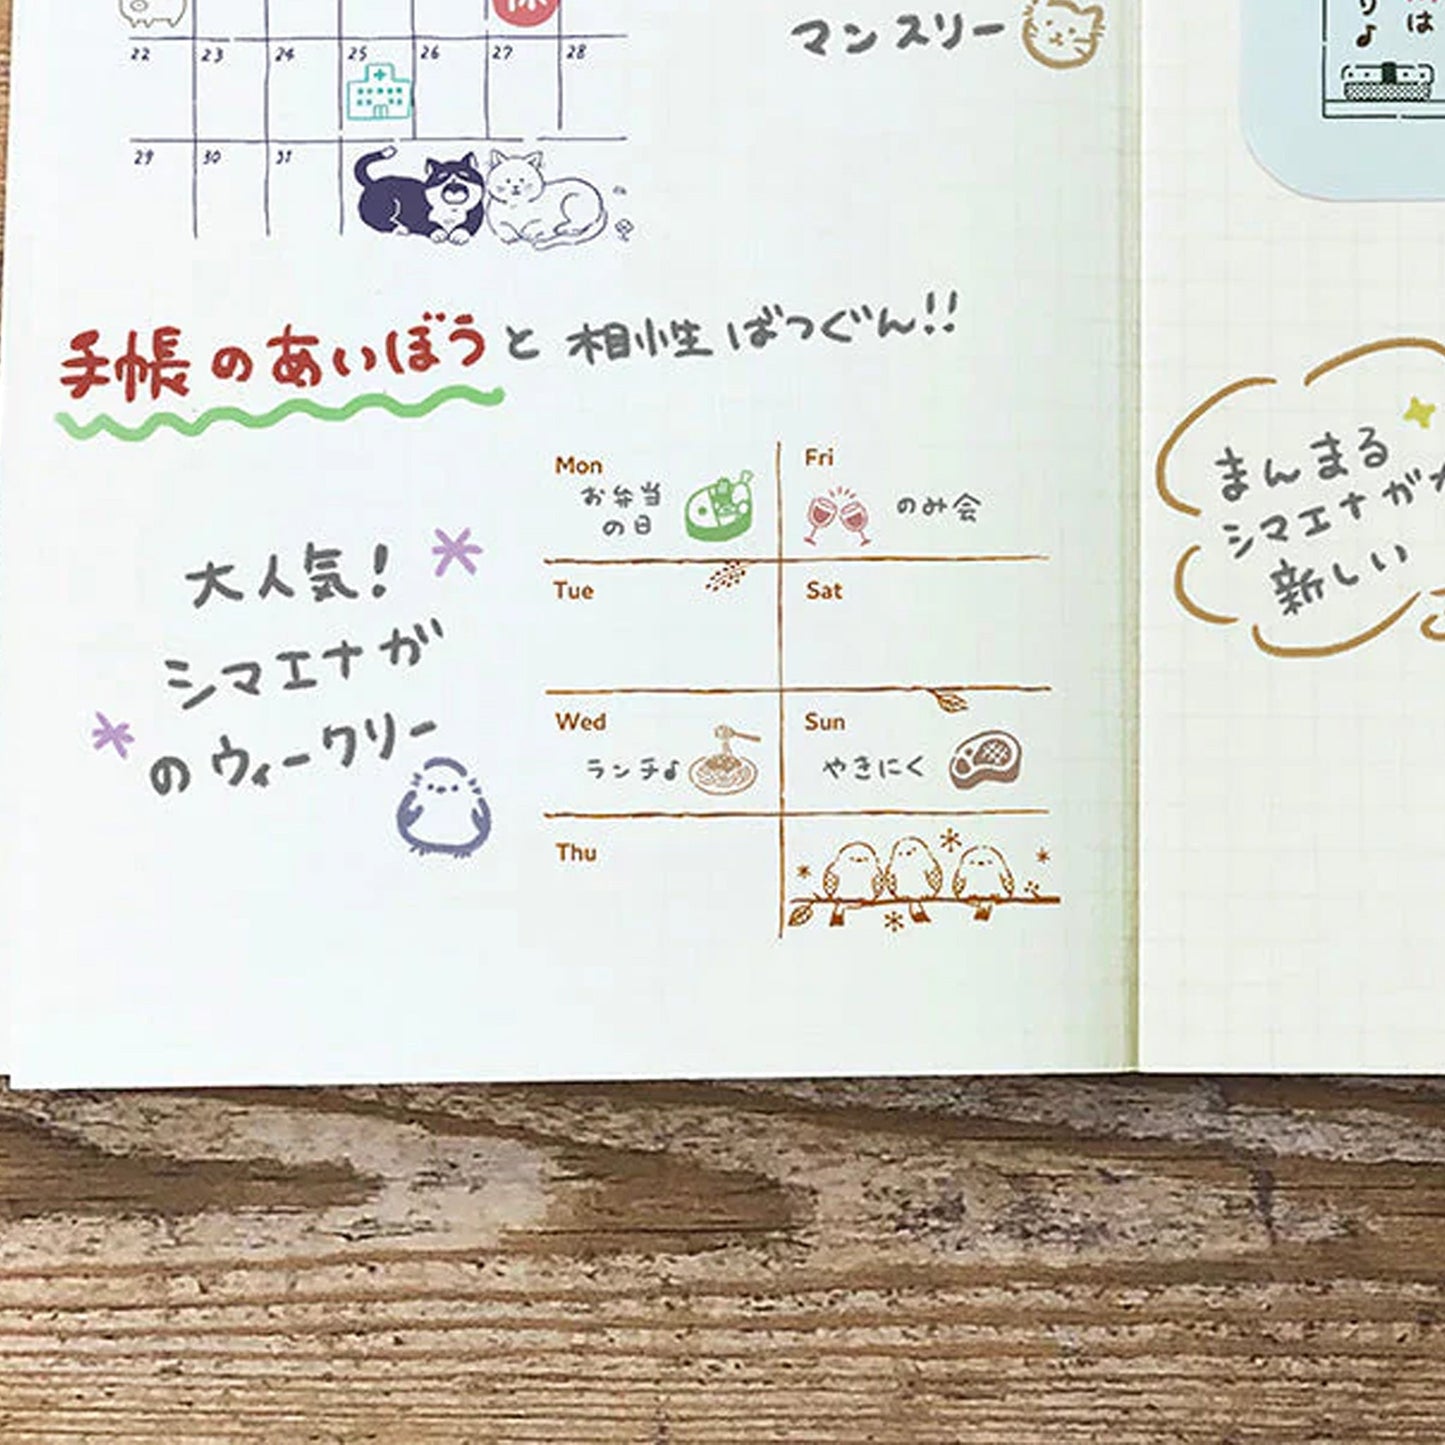 休
マンスリー
22 23 24 25 26 27 28
29 30 31
手帳のあいぼうと相性ばつぐん!!
大人気!
シマエナガ
のウィークリー
Mon
お弁当
の日
Fri
のみ会
Tue
Sat
Wed
ランチ♪
Sun
やきにく
Thu
は
り♪
まんまる
シマエナガが
新しい